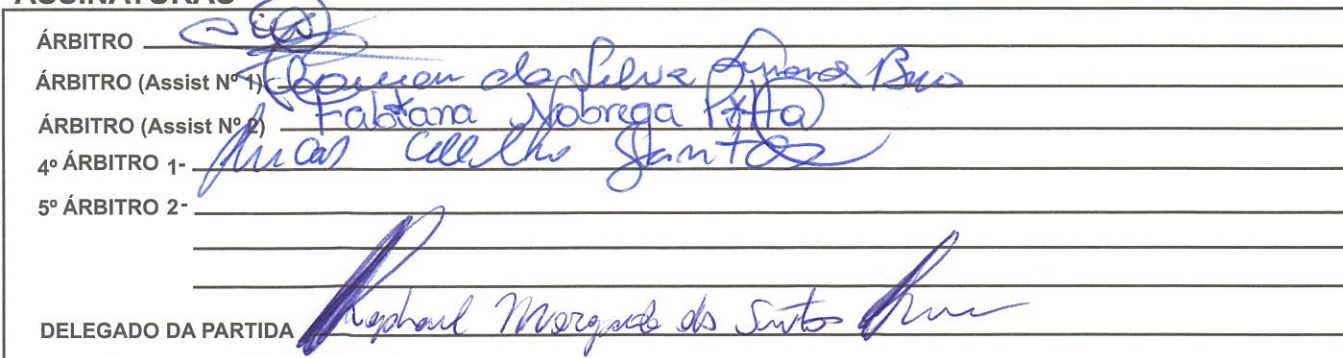 ASSINATURAS
ÁRBITRO
ÁRBITRO (Assist Nº 1) da Silva
ÁRBITRO (Assist Nº 2) Fabiana Nobrega Pitta
4º ÁRBITRO 1- Lucas Coelho Santos
5º ÁRBITRO 2-
DELEGADO DA PARTIDA Raphael dos Santos